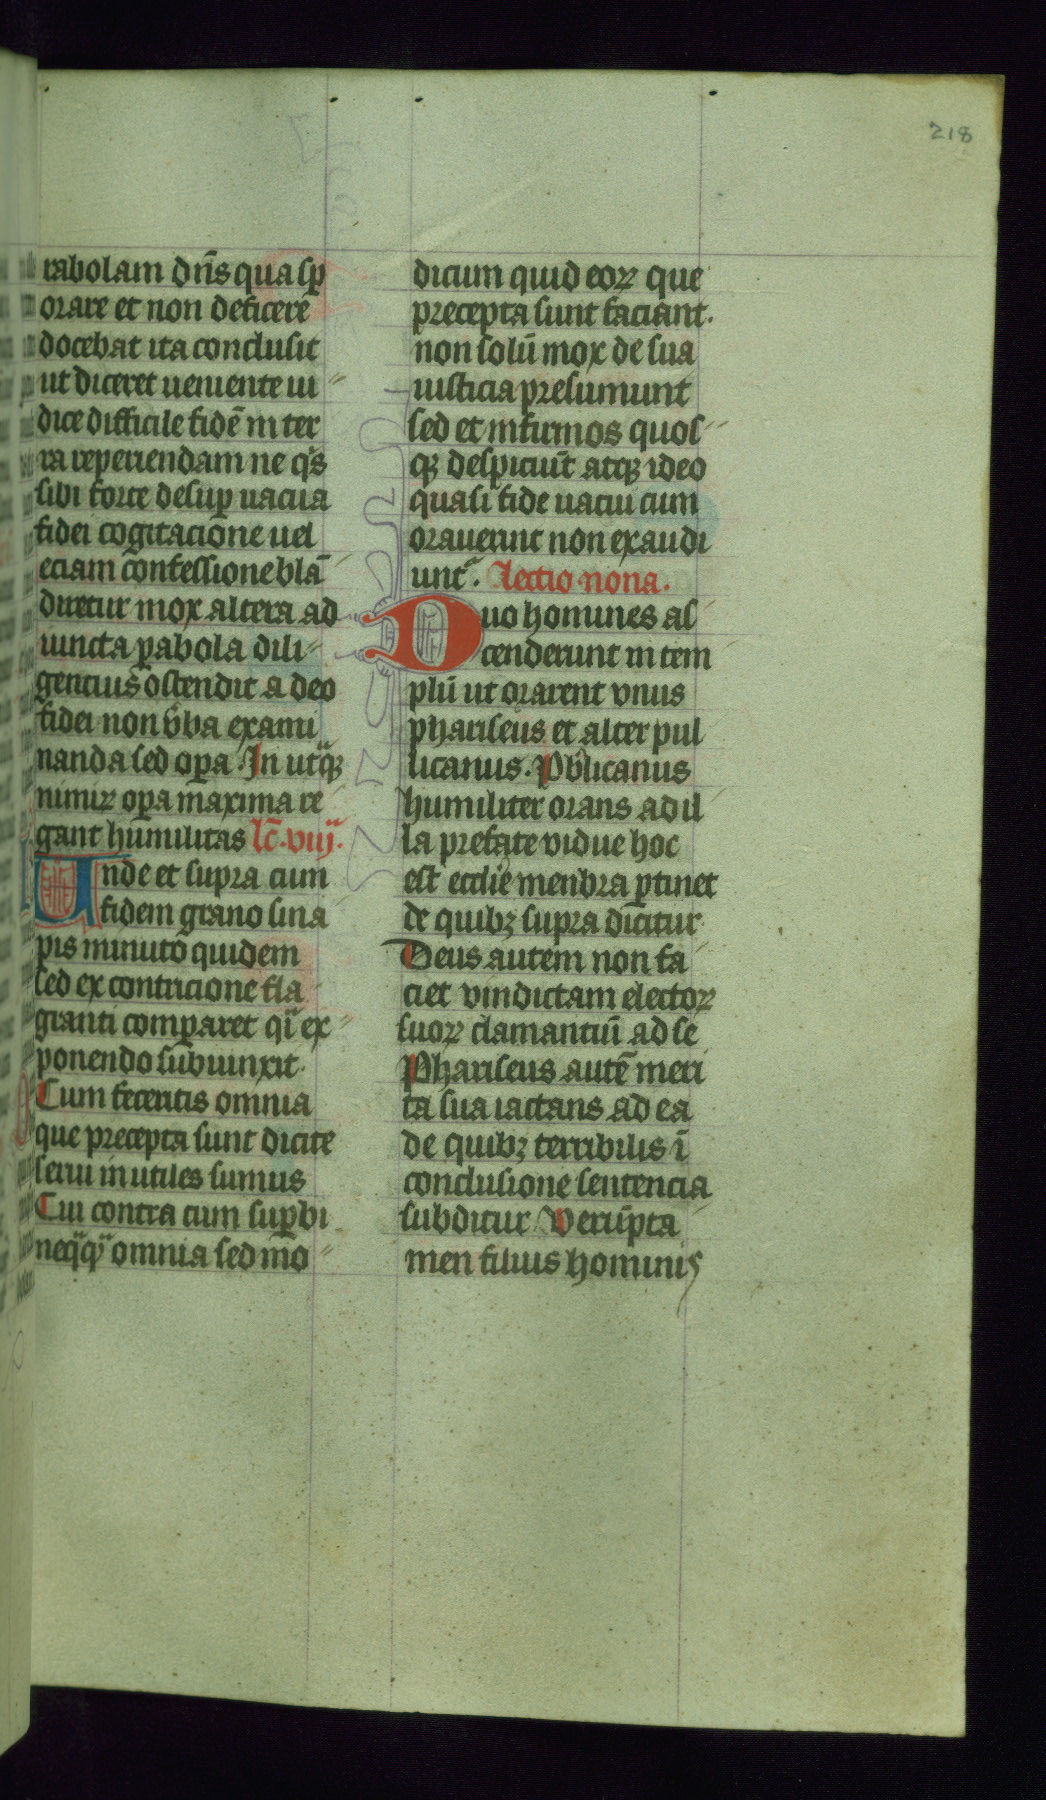 218
rabolam dn̄s qua sp̱
orare et non deficere
docebat ita conclusit
ut diceret ueniente iu
dice difficile fidē in ter
ra reperiendam ne qͥs
sibi forte desuꝑ uacua
fidei cogitacione uel
eciam confessione blā
diretur mox altera ad
iuncta ꝑabola dili
gencius ostendit a deo
fidei non v̄ba exami
nanda sed oꝑa. In utͣqꝫ
nimiꝝ oꝑa maxima re
gant humilitas lc̄. viij.
Unde et supra cum
fidem grano sina
pis minuto quidem
sed ex contricione fla
granti comꝑaret qͣi ex
ponendo subiunxit.
Cum feceritis omnia
que precepta sunt dicite
serui inutiles sumus
Cui contra cum suꝑbi
neqͣqͣ omnia sed mo
dicum quid eoꝝ que
precepta sunt faciant.
non solū mox de sua
iusticia presumunt
sed et infirmos quos
qꝫ despiciūt atqꝫ ideo
quasi fide uacui cum
orauerint non exaudi
unt᷑. Lectio nona.
Duo homines as
cenderunt in tem
plū ut orarent vnus
phariseus et alter pul
licanus. Pb̄licanus
humiliter orans ad il
la prefate vidue hoc
est ecclīe menbra ꝑtinet
de quibꝫ supra dicitur
Deus autem non fa
ciet vindictam electoꝝ
suoꝝ clamantiū ad se
Phariseus autē meri
ta sua iactans ad ea
de quibꝫ terribilis ī
conclusione sentencia
subditur Verūpta
men filius hominis